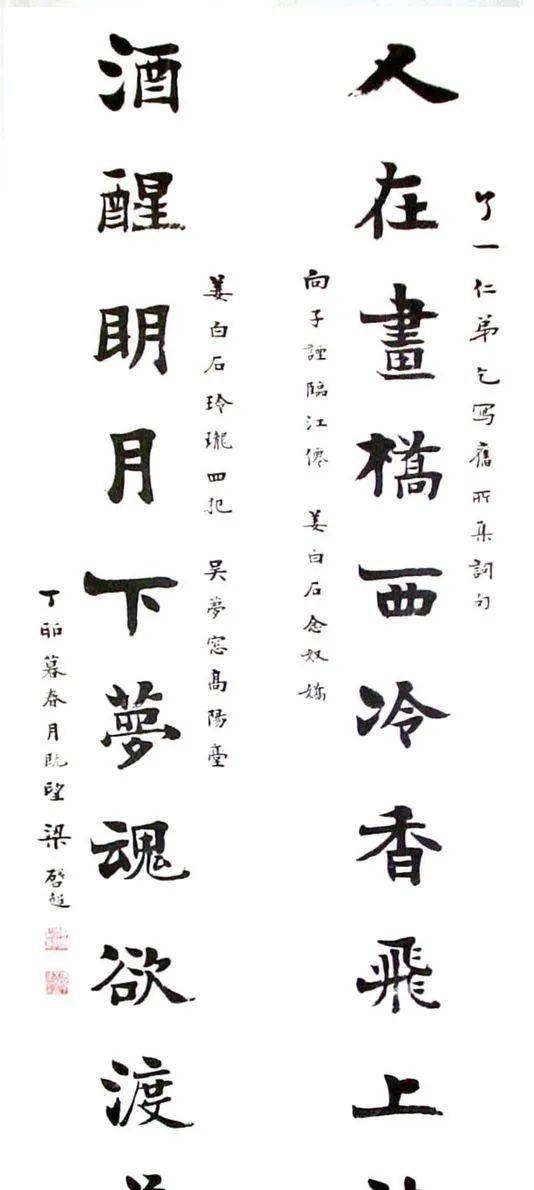 了一仁弟乞寫舊所集詞句
人在畫橋西冷香飛上
向子諲臨江僊 姜白石念奴嬌
姜白石玲瓏四犯 吳夢窓高陽臺
酒醒明月下夢魂欲渡
丁卯暮春月既望 梁啓超